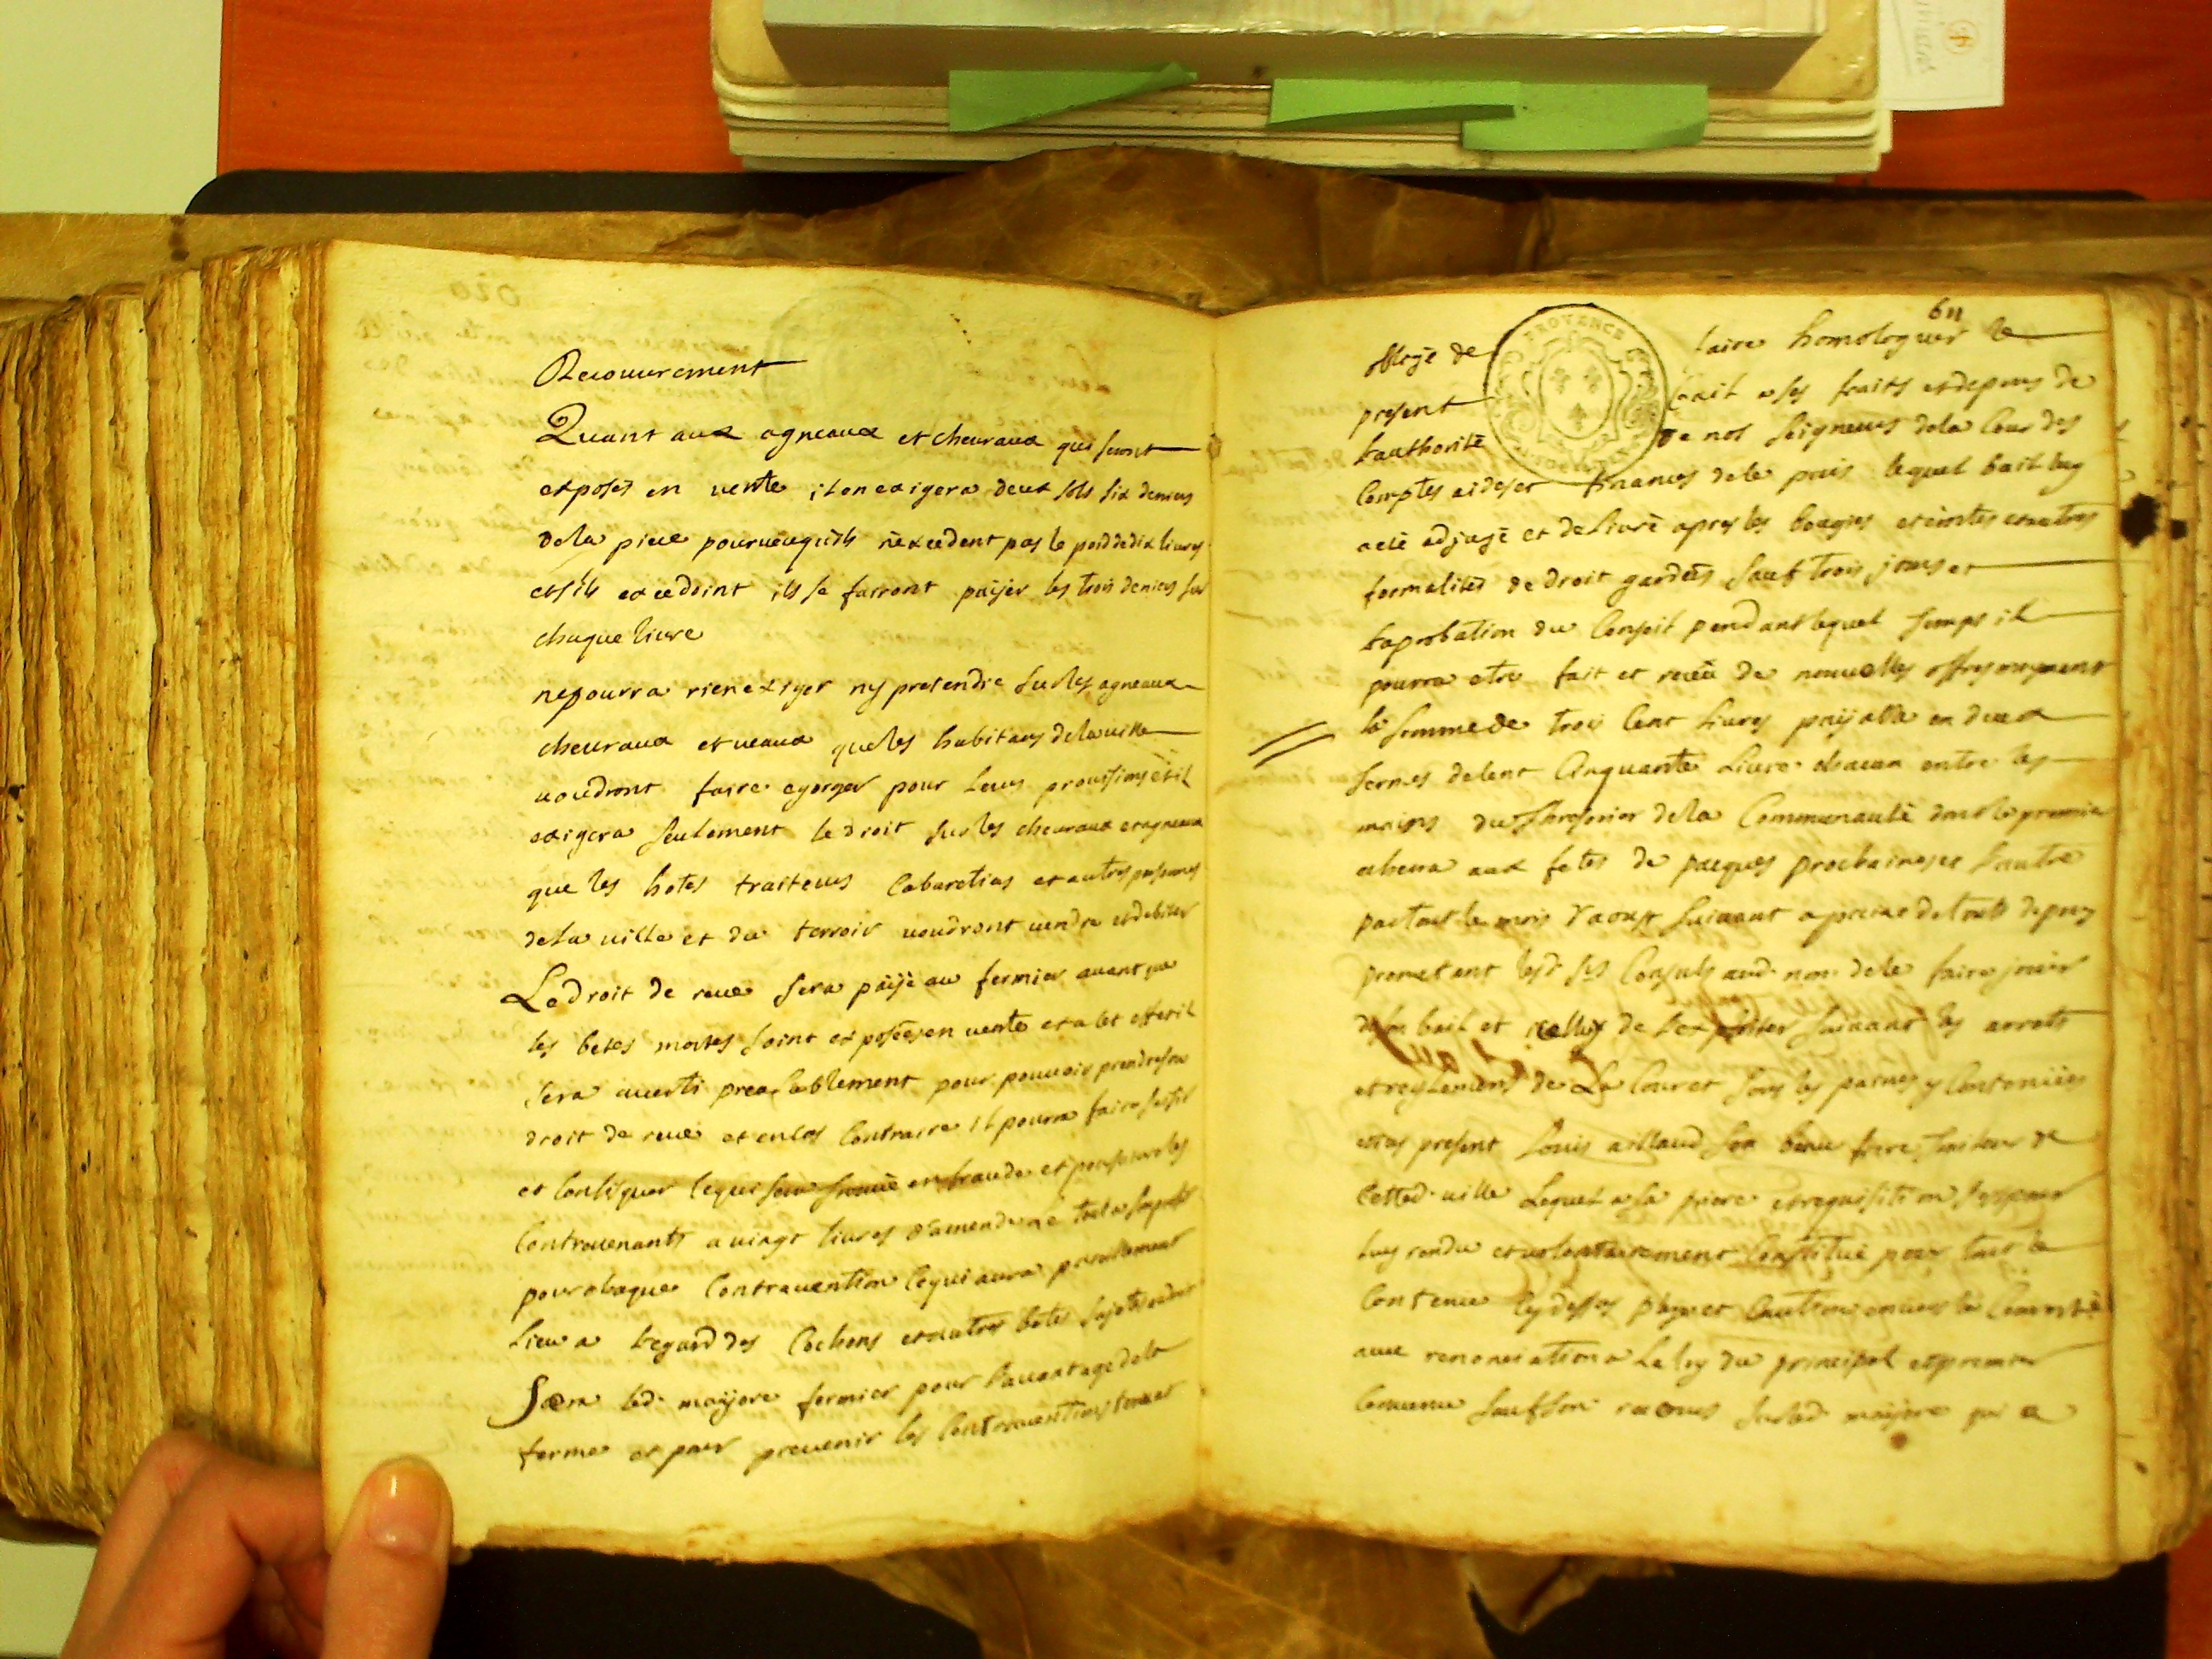 Recouurement
Quant aux agneaux et cheuraux qui seront
exposés en vente il en exigera deux sols six deniers
de la piece pourueuqu'ils n'excedent pas le poid de dix liures
et s'ils excedoint ils se farront paÿer les trois deniers sur
chaque liure
ne pourra rien exiger ny pretendre sur les agneaux
cheuraux et ueaux que les habitans de la uille
uoudront faire egorger pour leurs prouisions et il
exigera seulement le droit sur les cheuraux et agneaux
que les hotes traiteurs Cabaretiers et autres personnes
de la uille et du terroir uoudront uendre et debiter
Le droit de reue sera païjé au fermier auant que
les betes mortes soint exposées en uente et a cet effet il
sera auerti prealablement pour pouuoir prendre son
droit de reue et en cas Contraire il pourra faire saisir
et Confisquer ce qui sera trouué en fraude et poursuiure les
Contreuenants a uingt liures d'amende
pour chaque Contrauention ce qui aura pareillement
Lieu a l'egard des Cochons et autres betes
Sera led. maÿore fermier pour l'auantage de la
ferme et pour preuenir les Contrauentions
611
PROVENCE
oblige de faire homologuer le
present bail a ses fraits et depens de
l'authorité de nos seigneurs de la Cour des
Comptes aides et finances de ce païs lequel bail luy
a eté adjugé et deliuré apres les bougies eteintes et autres
formalités de droit gardées sauf trois jours et
l'aprobation du Conseil pendant lequel temps il
pourra etre fait et receu de nouuelles offres moyenent
la somme de trois Cent Liures païjable en deux
termes de Cent Cinquante Liures chacun entre les
mains du Thresorier de la Communauté dont le premier
echerra aux fetes de paques prochaines et l'autre
par tout le mois d'aoust suiuant a peine de touts depens
prometant lesd. srs Consuls aud. nom de le faire jouir
du bail et icelluy de l'exploiter suiuant les arrets
et reglement de La Cour et sous les peines y Contenües
present Louis aillaud son beau frere traiteur de
Cetted. uille Lequel a sa priere et requisition s'est pour
luy rendu et uolontairement Constitué pour tout le
Contenu cy dessus plege et Caution enuers la Comunté
auec renonciation a La loy du principal et premier
Conuenu sauf son recours sur led. maÿore qui a